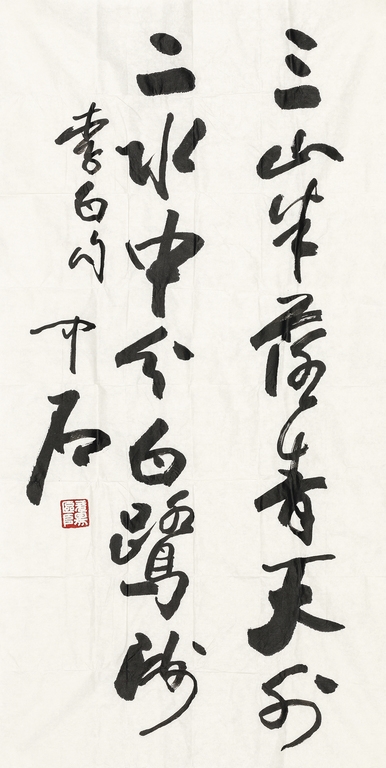 三山半落青天外
二水中分白鹭洲
李白句
中石